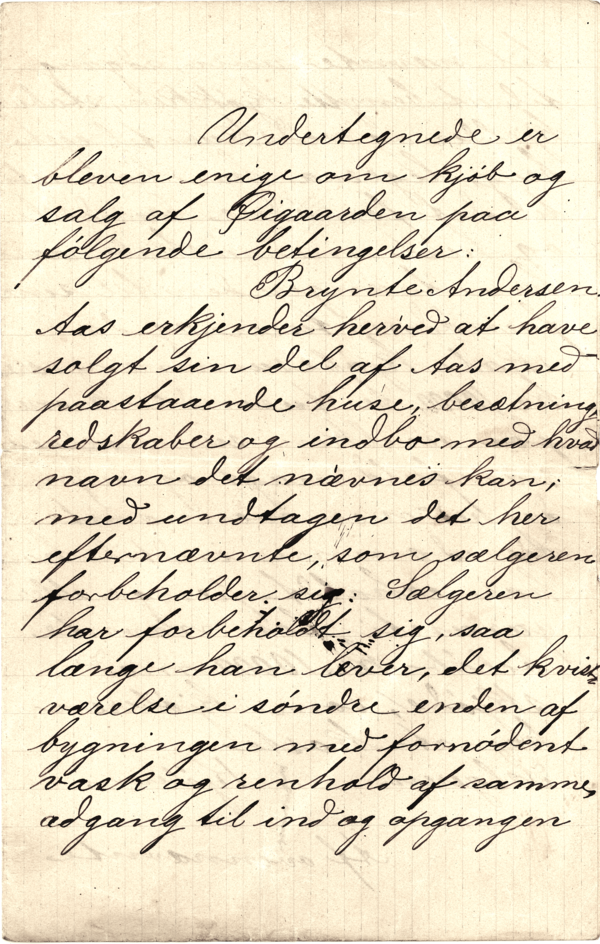 Undertegnede er
bleven enige om kjøb og
salg af Øigaarden paa
følgende betingelser:
Brynte Andersen
Aas erkjender herved at have
solgt sin del af Aas med
paastaaende huse, besætning,
redskaber og indbo med hvad
navn det nævnes kan,
med undtagen det her
efternævnte, som sælgeren
forbeholder sig: Sælgeren
har forbeholdt sig, saa
længe han lever, det kvist-
værelse i søndre enden af
bygningen med fornødent
vask og renhold af samme,
adgang til ind og opgangen